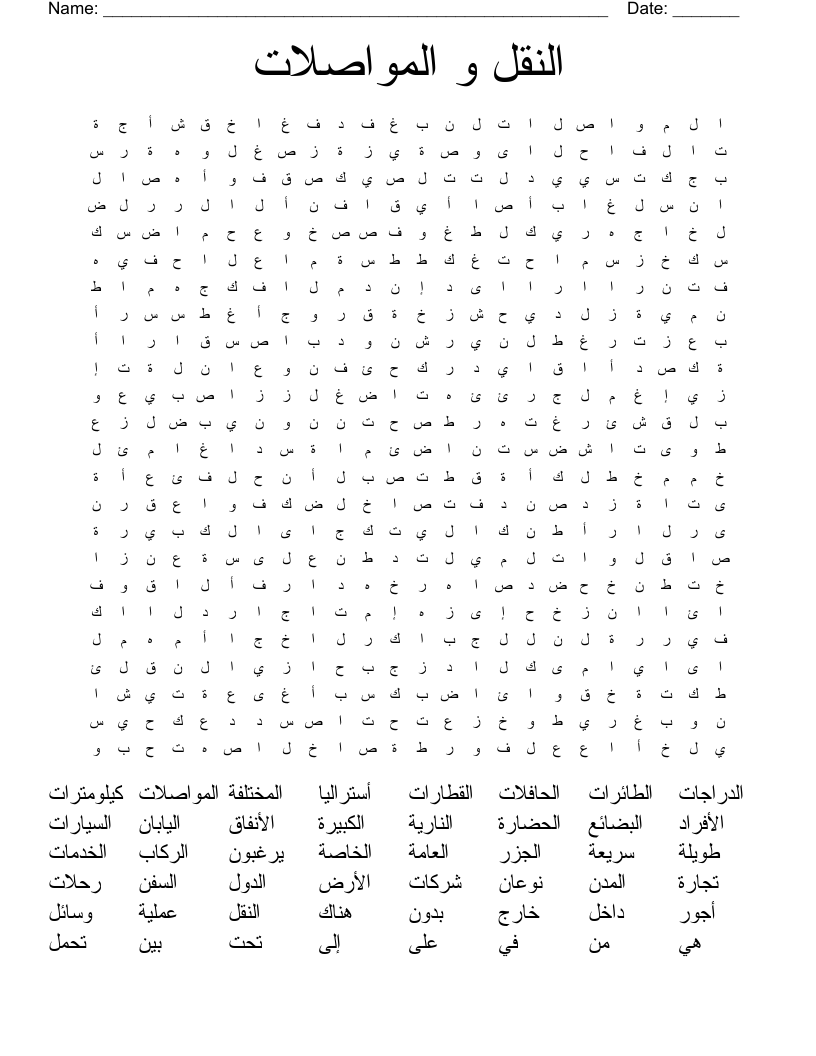 Name: ____________________________________________________ Date: _______
النقل و المواصلات
ا ل م و ا ص ل ا ت ل ن ب غ ف د ف غ ا خ ق ش أ ج ة
ت ا ل ف ا ح ل ا ى و ص ة ي ز ة ز ص غ ل و ه ة ر س
ب ج ك ت س ي ي د ل ت ت ل ص ي ك ص ق ف و أ ه ص ا ل
ا ن س ل غ ا ب أ ص ا أ ي ق ا ف ن أ ل ا ل ر ر ل ض
ل خ ا ج ه ر ي ك ل ط غ و ف ص ص خ و ع ح م ا ض س ك
س ك خ ز س م ا ح ت غ ك ط ط س ة م ا ع ل ا ح ف ي ه
ف ت ن ر ا ا ر ا ا ى د إ ن د م ل ا ف ك ج ه م ا ط
ن م ي ة ز ل د ي ح ش ز خ ة ق ر و ج أ غ ط س س ر أ
ب ع ز ت ر غ ط ل ن ي ر ش ن و د ب ا ص س ق ا ر ا أ
ة ك ص د أ ا ق ا ي د ر ك ح ئ ف ن و ع ا ن ل ة ت إ
ز ي إ غ م ل ج ر ئ ئ ه ت ا ض غ ل ز ز ا ص ب ي ع و
ب ل ق ش ئ ر غ ت ه ر ط ص ح ت ن ن و ن ي ب ض ل ز ع
ط و ى ت ا ش ض س ت ن ا ض ئ م ا ة س د ا غ ا م ئ ل
خ م م خ ط ل ك أ ة ق ط ت ص ب ل أ ن ح ل ف ئ ع أ ة
ى ت ا ة ز د ص ن د ف ت ص ا خ ل ض ك ف و ا ع ق ر ن
ى ر ل ا ر أ ط ن ك ا ل ي ت ك ج ا ى ا ل ك ب ي ر ة
ص ا ق ل و ا ت ل م ي ل ت د ط ن ع ل ى س ة ع ن ز ا
خ ت ط ن خ ح ض د ص ا ه ر خ ه د ا ر ف أ ل ا ق و ف
ا ئ ا ا ن ز خ ح إ ى ز ه إ م ت ا ج ا ر د ل ا ا ك
ف ي ر ر ة ل ن ل ل ج ب ا ك ر ل ا خ ج ا أ م ه م ل
ا ى ا ي ا م ى ك ل ا د ز ج ب ح ا ز ي ا ل ن ق ل ئ
ط ك ت ة خ ق و ا ئ ا ض ب ك س ب أ غ ى ع ة ت ي ش ا
ن و ب غ ر ي ط و خ ز ع ت ح ت ا ص س د د ع ك ح ي س
ي ل خ أ ا ع ع ل ف و ر ط ة ص ا خ ل ا ص ه ت ح ب و
الدراجات الطائرات الحافلات القطارات أستراليا المختلفة المواصلات كيلومترات
الأفراد البضائع الحضارة النارية الكبيرة الأنفاق اليابان السيارات
طويلة سريعة الجزر العامة الخاصة يرغبون الركاب الخدمات
تجارة المدن نوعان شركات الأرض الدول السفن رحلات
أجور داخل خارج بدون هناك النقل عملية وسائل
هي من في على إلى تحت بين تحمل